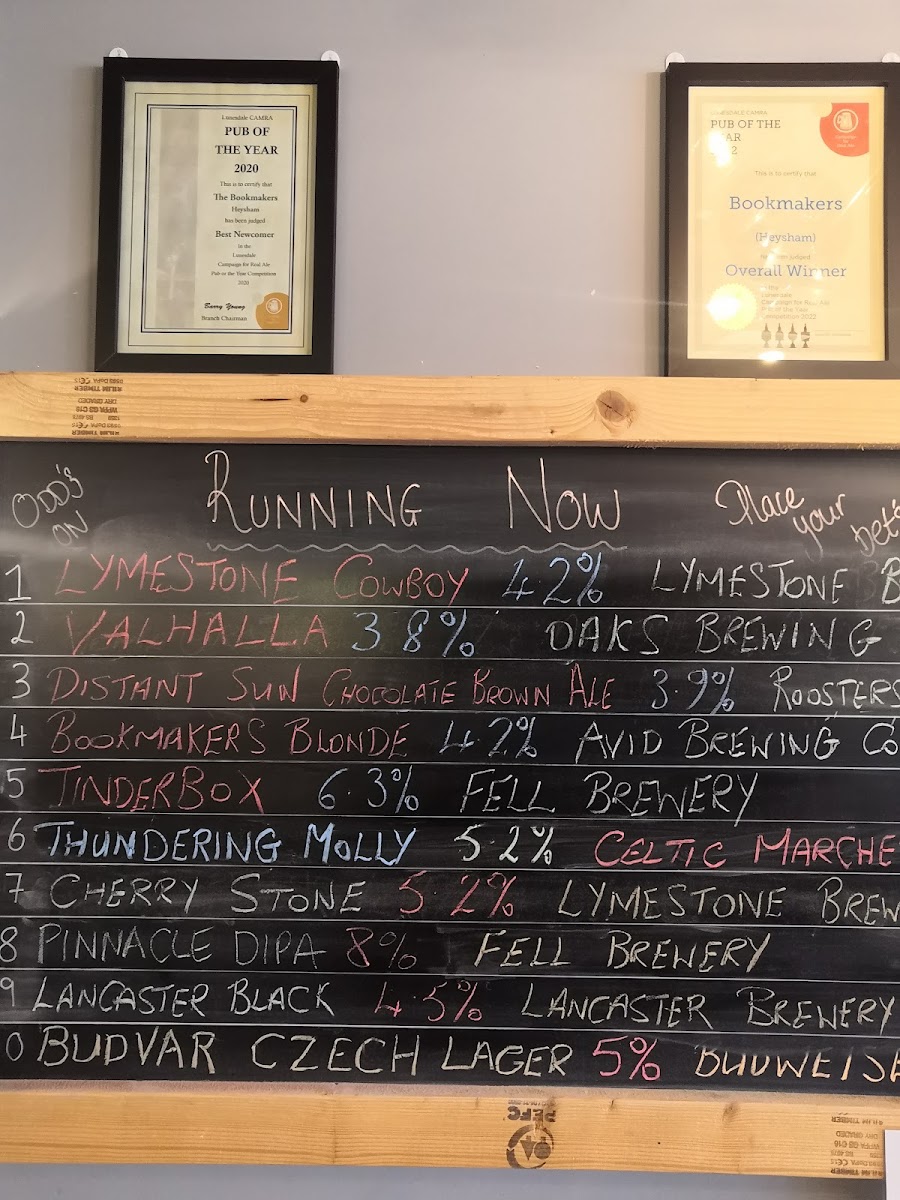 Lunesdale CAMRA
PUB OF
THE YEAR
2020
This is to certify that
The Bookmakers
Heysham
has been judged
Best Newcomer
in the
Lunesdale
Campaign for Real Ale
Pub of the Year Competition
2020
Barry Young
Branch Chairman
LUNESDALE CAMRA
PUB OF THE
This is to certify that
Bookmakers
(Heysham)
has been judged
Overall Winner
in the
Lunesdale
Campaign for Real Ale
Pub of the Year
Competition 2022
Campaign
for
Real Ale
ODD'S
ON
RUNNING NOW
Place
your
bet's
1 LYMESTONE COWBOY 4.2% LYMESTONE B
2 VALHALLA 3.8% OAKS BREWING
3 DISTANT SUN CHOCOLATE BROWN ALE 3.9% ROOSTERS
4 BOOKMAKERS BLONDE 4.2% AVID BREWING CO
5 TINDERBOX 6.3% FELL BREWERY
6 THUNDERING MOLLY 5.2% CELTIC MARCHE
7 CHERRY STONE 5.2% LYMESTONE BREW
8 PINNACLE DIPA 8% FELL BREWERY
9 LANCASTER BLACK 4.5% LANCASTER BREWERY
0 BUDVAR CZECH LAGER 5% BUDWEISE
PEFC
ILIM TIMBER
DRY GRADED